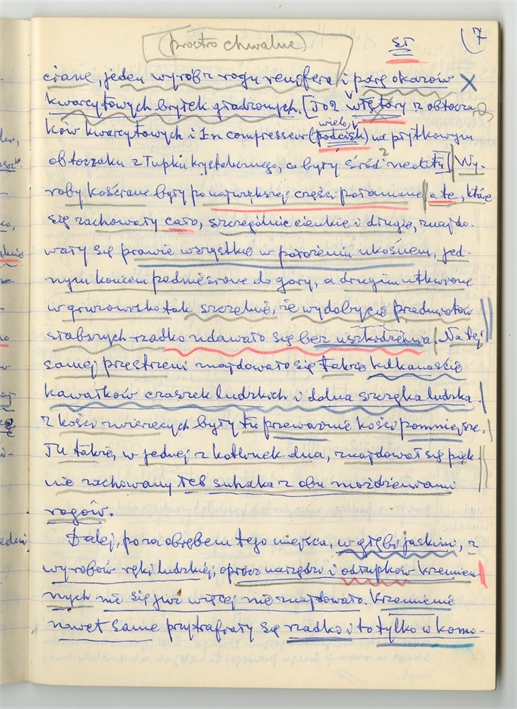 (prosto chwalne) 57 7
ciane, jeden wyrób z rogu renifera i parę okazów
kwarcytowych bryłek gładzonych. [Toż wtętory z otocza-
ków kwarcytowych i In compressem (podcisk) we płytkowym
otoczaku z łupku krystalicznego, co były śród nich] Wy-
roby kościane były po największej części połamane, a te, które
się zachowały cało, szczególnie cienkie i długie, znajdo-
wały się prawie wszystkie w położeniu ukośnem, jed-
nym końcem podniesione do góry, a drugim utkwione
w gruzowisku tak szczelnie, że wydobycie przedmiotów
słabszych rzadko udawało się bez uszkodzenia. Na tej
samej przestrzeni znajdowało się także kilkanaście
kawałków czaszek ludzkich i dolna szczęka ludzka
z kości zwierzęcych były tu przeważnie kości pomniejsze.
Tu także, w jednej z kotlinek dna, znajdował się pięk-
nie zachowany łeb suhaka z obu możdżeniami
rogów.
Dalej, poza obrębem tego miejsca, w głębi jaskini, z
wyrobów ręki ludzkiej, oprócz narzędzi i odłupków krzemien-
nych nic się już więcej nie znajdowało. Krzemienie
nawet same przytrafiały się rzadko i to tylko w komo-